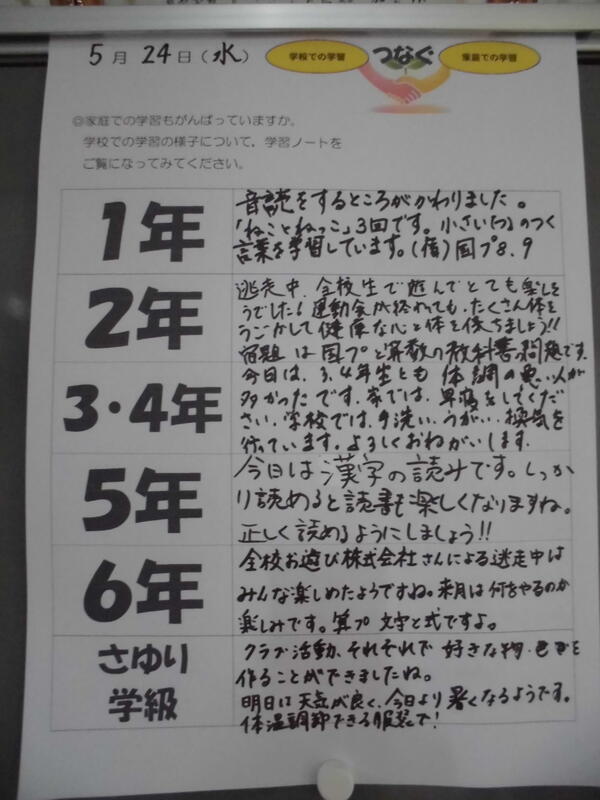 5月24日(水)
学校での学習
つなぐ
家庭での学習
◎家庭での学習もがんばっていますか。
学校での学習の様子について、学習ノートを
ご覧になってみてください。
1年
音読をするところがかわりました。
「ねことねっこ」3回です。小さい(つ)のつく
言葉を学習しています。(宿)国プ8.9
2年
逃走中、全校生で遊んでとても楽しそ
うでした!運動会が終わっても、たくさん体を
うごかして健康な心と体を保ちましょう!!
宿題は国プと算数の教科書問題です。
3・4年
今日は、3.4年生とも体調の悪い人が
多かったです。家では、早寝をしてくだ
さい。学校では、手洗い、うがい、換気を
行っています。よろしくおねがいします。
5年
今日は漢字の読みです。しっか
り読めると読書も楽しくなりますね。
正しく読めるようにしましょう!!
6年
全校お遊び株式会社さんによる逃走中は
みんな楽しめたようですね。来月は何をやるのか
楽しみです。算プ 文字と式ですよ。
さゆり
学級
クラブ活動、それぞれで好きな物・
作ることができましたね。
明日は天気が良く、今日より暑くなるようです。
体温調節できる服装で!